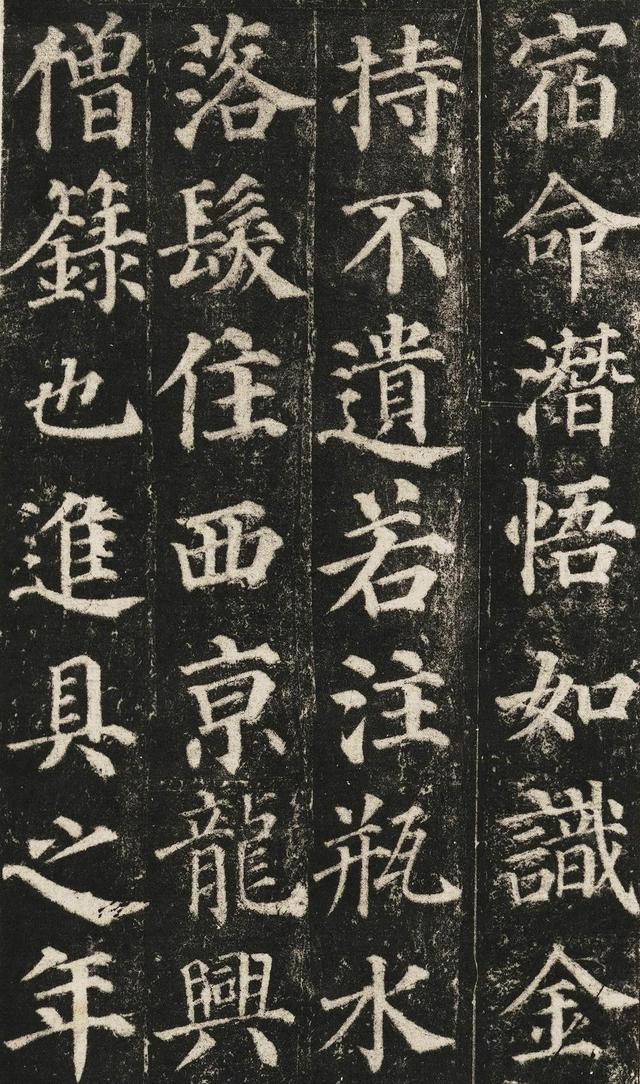 宿命潛悟如識金
持不遺若注瓶水
落髮住西京龍興
僧籙也進具之年